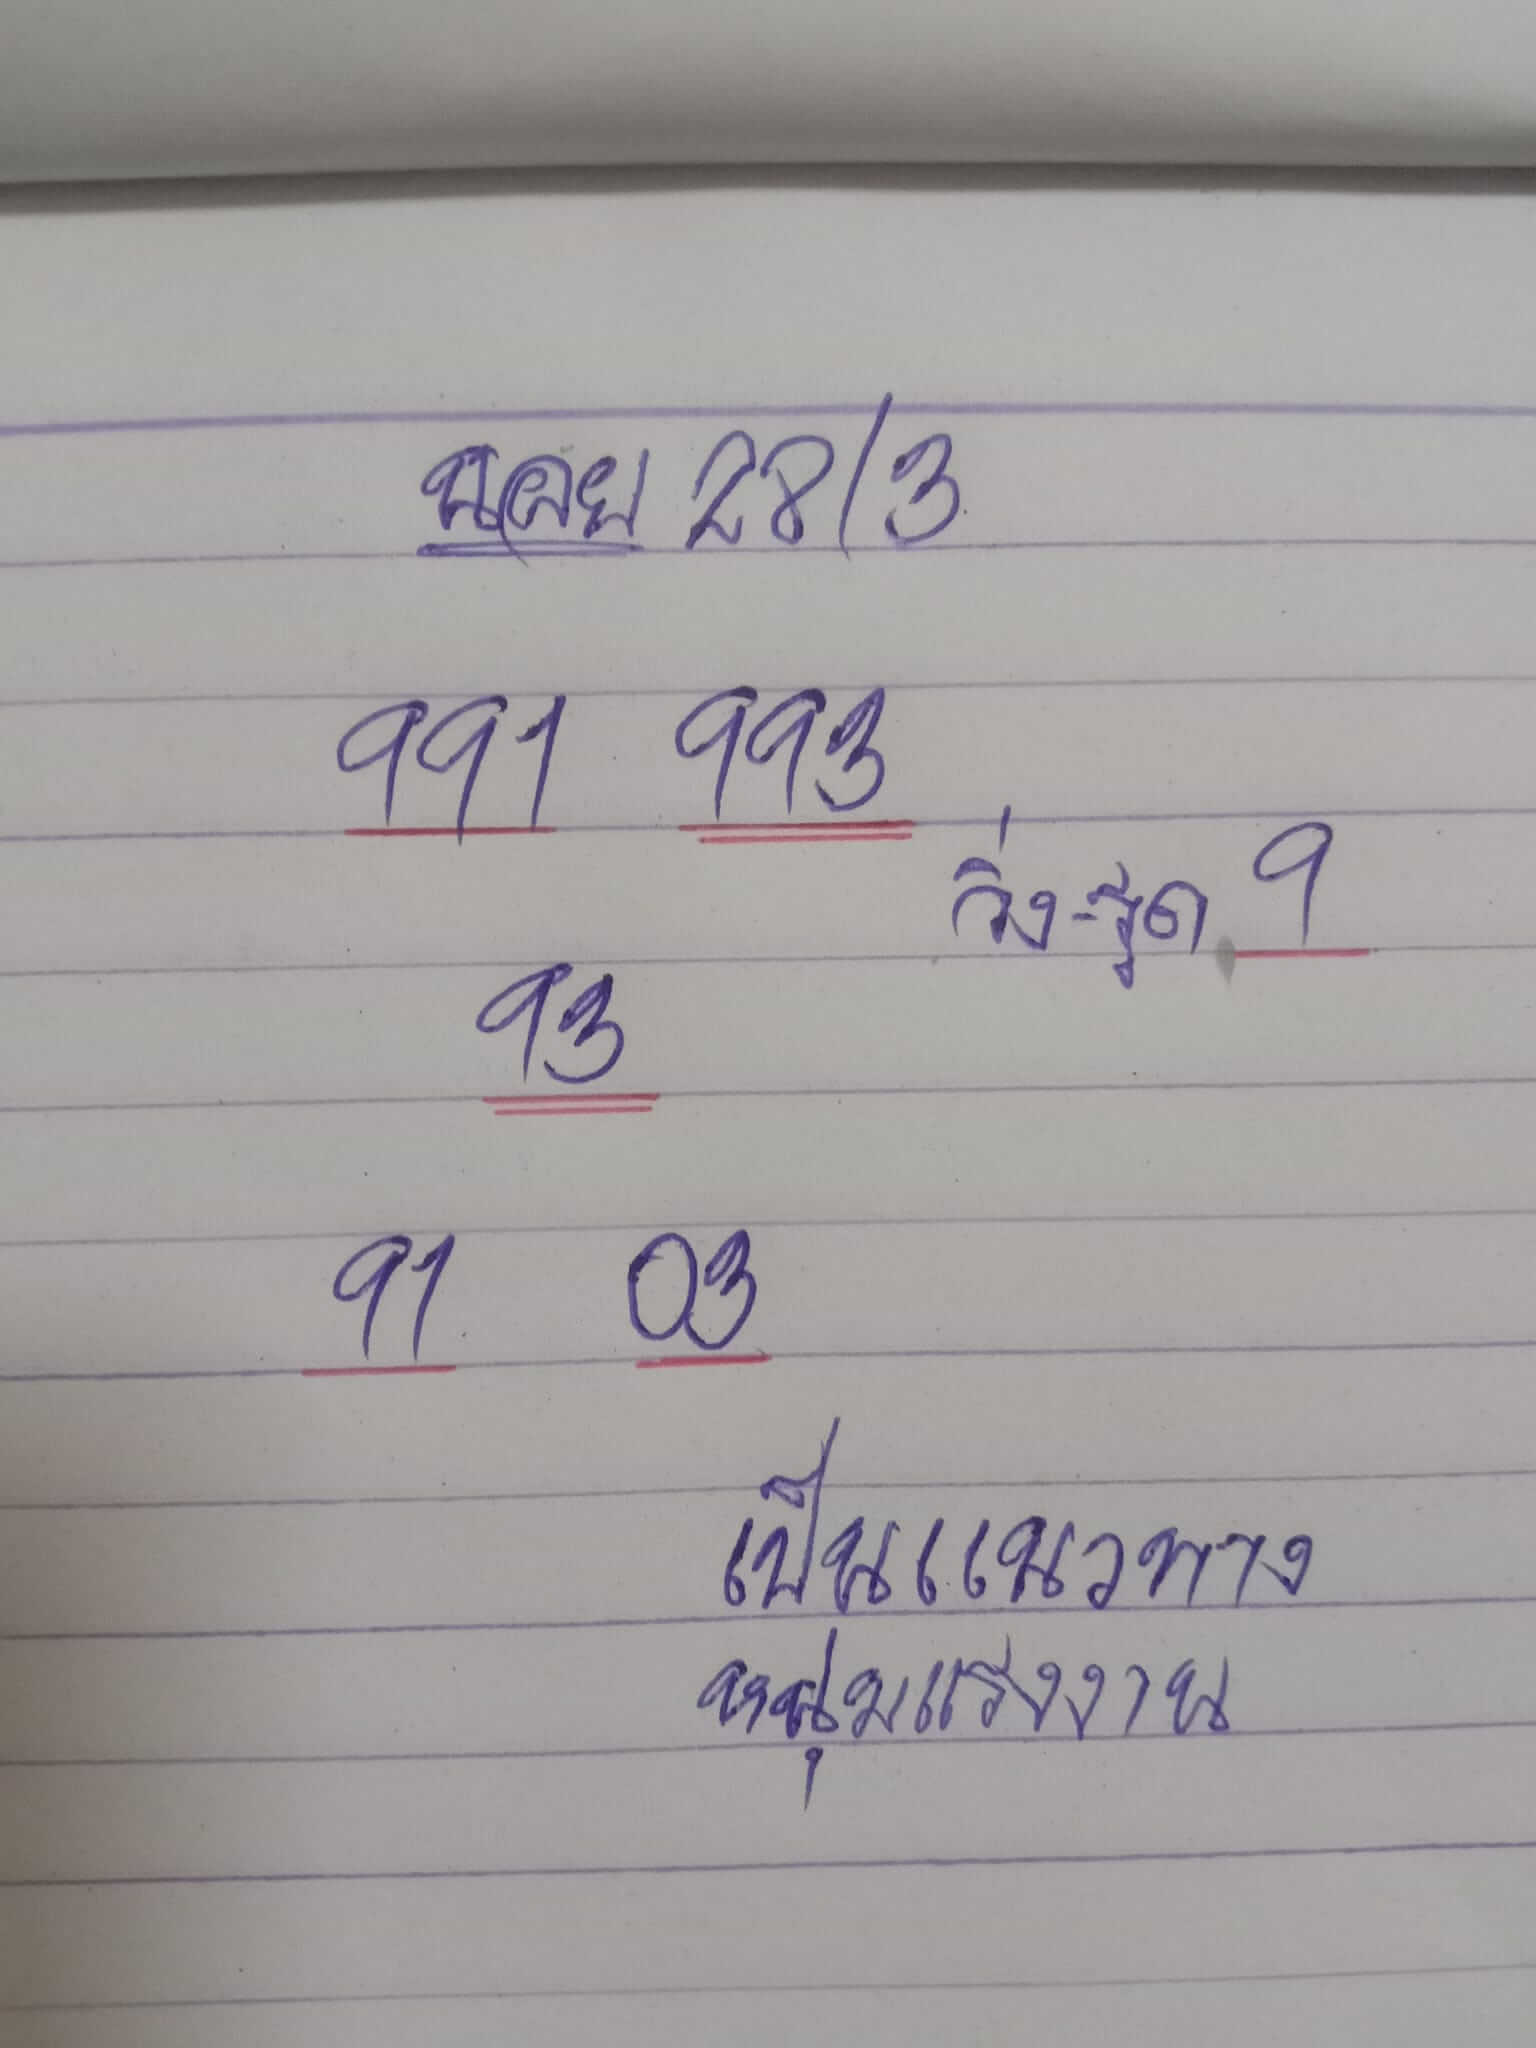 ฮานอย 28/3
991 993
วิ่ง-รูด 9
93
91 03
เป็นแนวทาง
หนุ่มแรงงาน